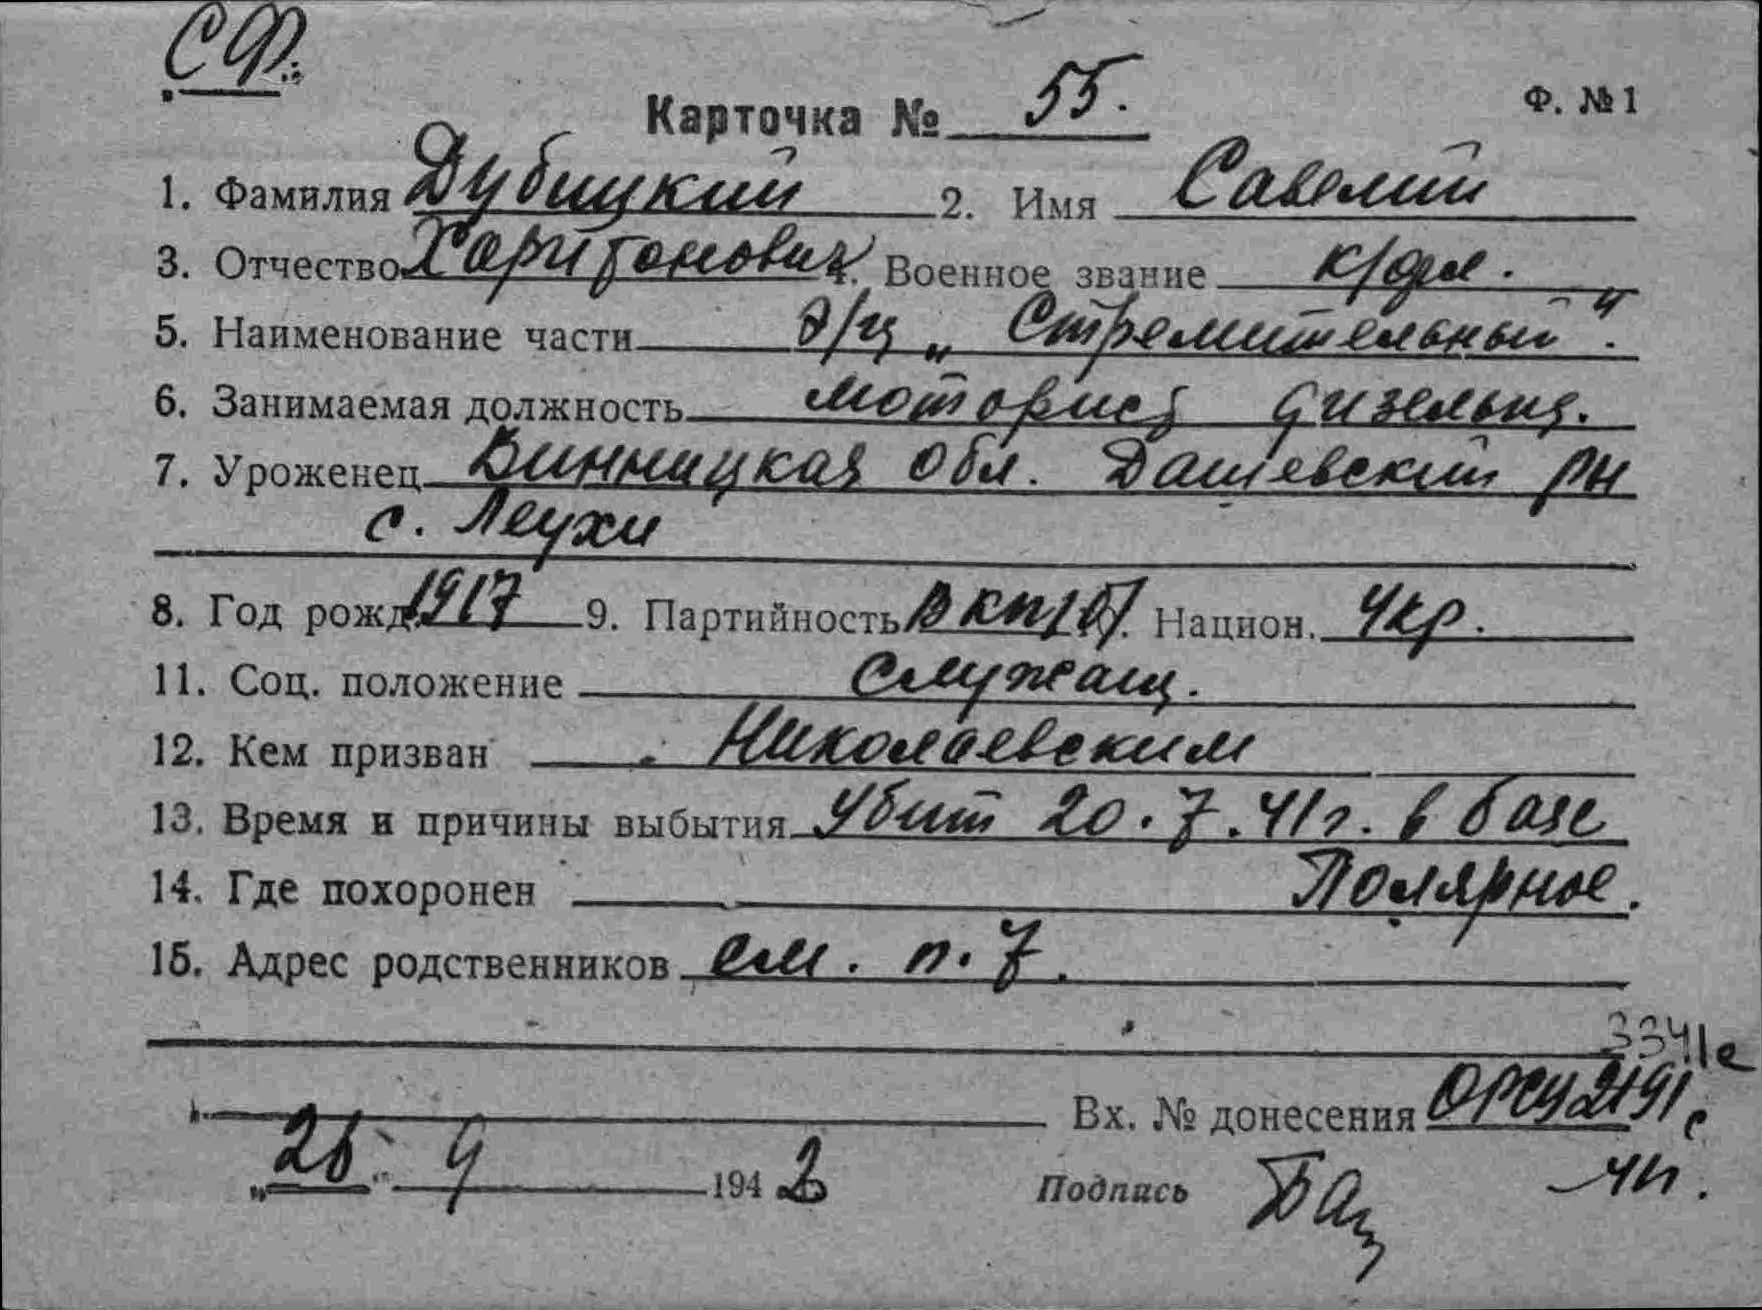 СФ.
Карточка № 55.
Ф. № 1
1. Фамилия Дубицкий 2. Имя Савелий
3. Отчество Харитонович 4. Военное звание к/фл.
5. Наименование части э/м „Стремительный".
6. Занимаемая должность моторист дизельн.
7. Уроженец Винницкая обл. Дашевский рн
с. Леухи
8. Год рожд. 1917 9. Партийность ВКП(б) Национ. Укр.
11. Соц. положение служащ.
12. Кем призван Николаевским
13. Время и причины выбытия Убит 20.7.41г. в базе
14. Где похоронен Полярное.
15. Адрес родственников см. п. 7.
3341с
Вх. № донесения ОРСУ 2191с
„26" 9 1942 Подпись